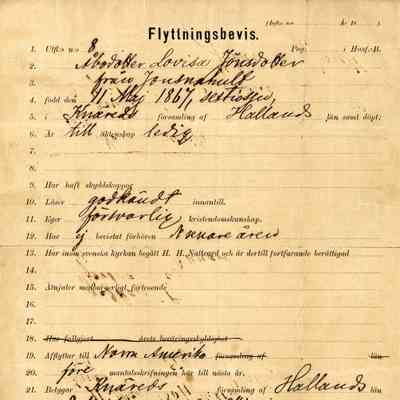 Flyttningsbevis.
1. Utfl.s n:o 8 Pag. i Husf.-B.
2. Åbodotter Lovisa Jönsdotter
3. från Jonsnahult
4. född den 11 Maj 1867, sextiosju,
5. i Knäreds församling af Hallands län samt döpt;
6. Är till äktenskap ledig
7.
8.
9. Har haft skyddskoppor
10. Läser godkändt innantill.
11. Eger försvarlig kristendomskunskap.
12. Har ej bevistat förhören senare åren
13. Har inom svenska kyrkan begått H. H. Nattvard och är dertill fortfarande berättigad
14.
15. Åtnjuter medborgerligt förtroende
16.
17.
18. Har fullgjort årets beväringsskyldighet
19. Afflyttar till Norra Amerika församling af län
20. före mantalsskrifningen här till nästa år.
21. Betygar Knäreds församling af Hallands län